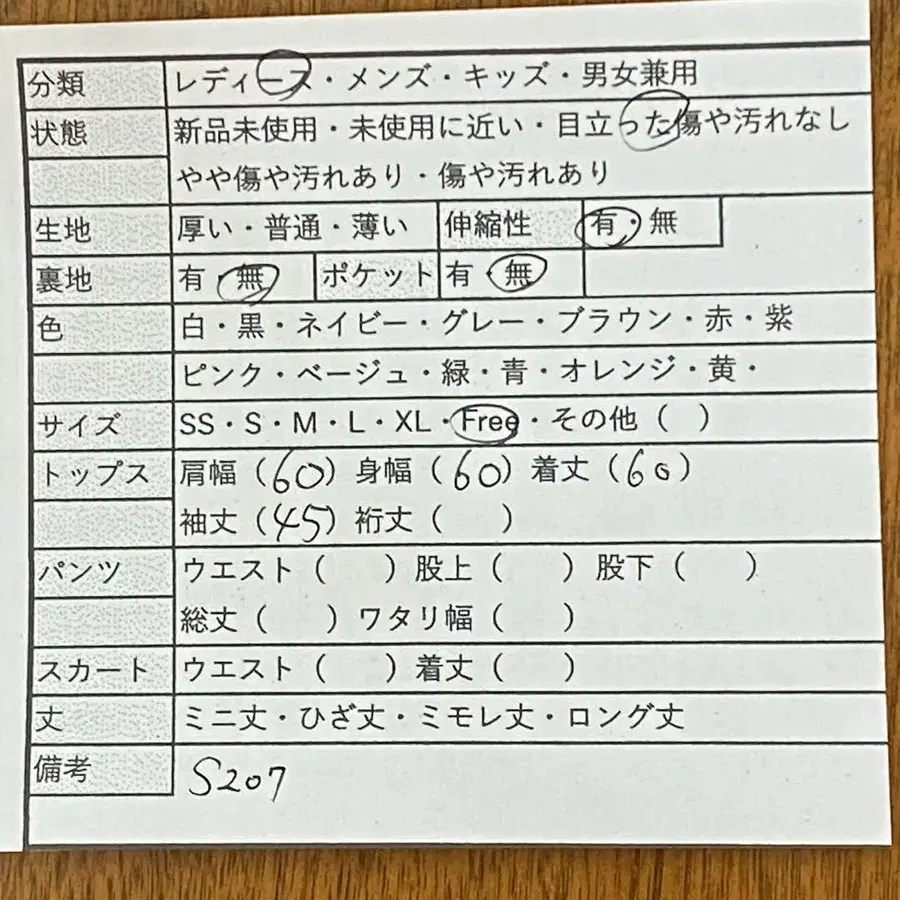 分類 レディース・メンズ・キッズ・男女兼用
状態 新品未使用・未使用に近い・目立った傷や汚れなし
やや傷や汚れあり・傷や汚れあり
生地 厚い・普通・薄い 伸縮性 有・無
裏地 有・無 ポケット 有・無
色 白・黒・ネイビー・グレー・ブラウン・赤・紫
ピンク・ベージュ・緑・青・オレンジ・黄・
サイズ SS・S・M・L・XL・Free・その他（ ）
トップス 肩幅（60）身幅（60）着丈（60）
袖丈（45）裄丈（ ）
パンツ ウエスト（ ）股上（ ）股下（ ）
総丈（ ）ワタリ幅（ ）
スカート ウエスト（ ）着丈（ ）
丈 ミニ丈・ひざ丈・ミモレ丈・ロング丈
備考 S207